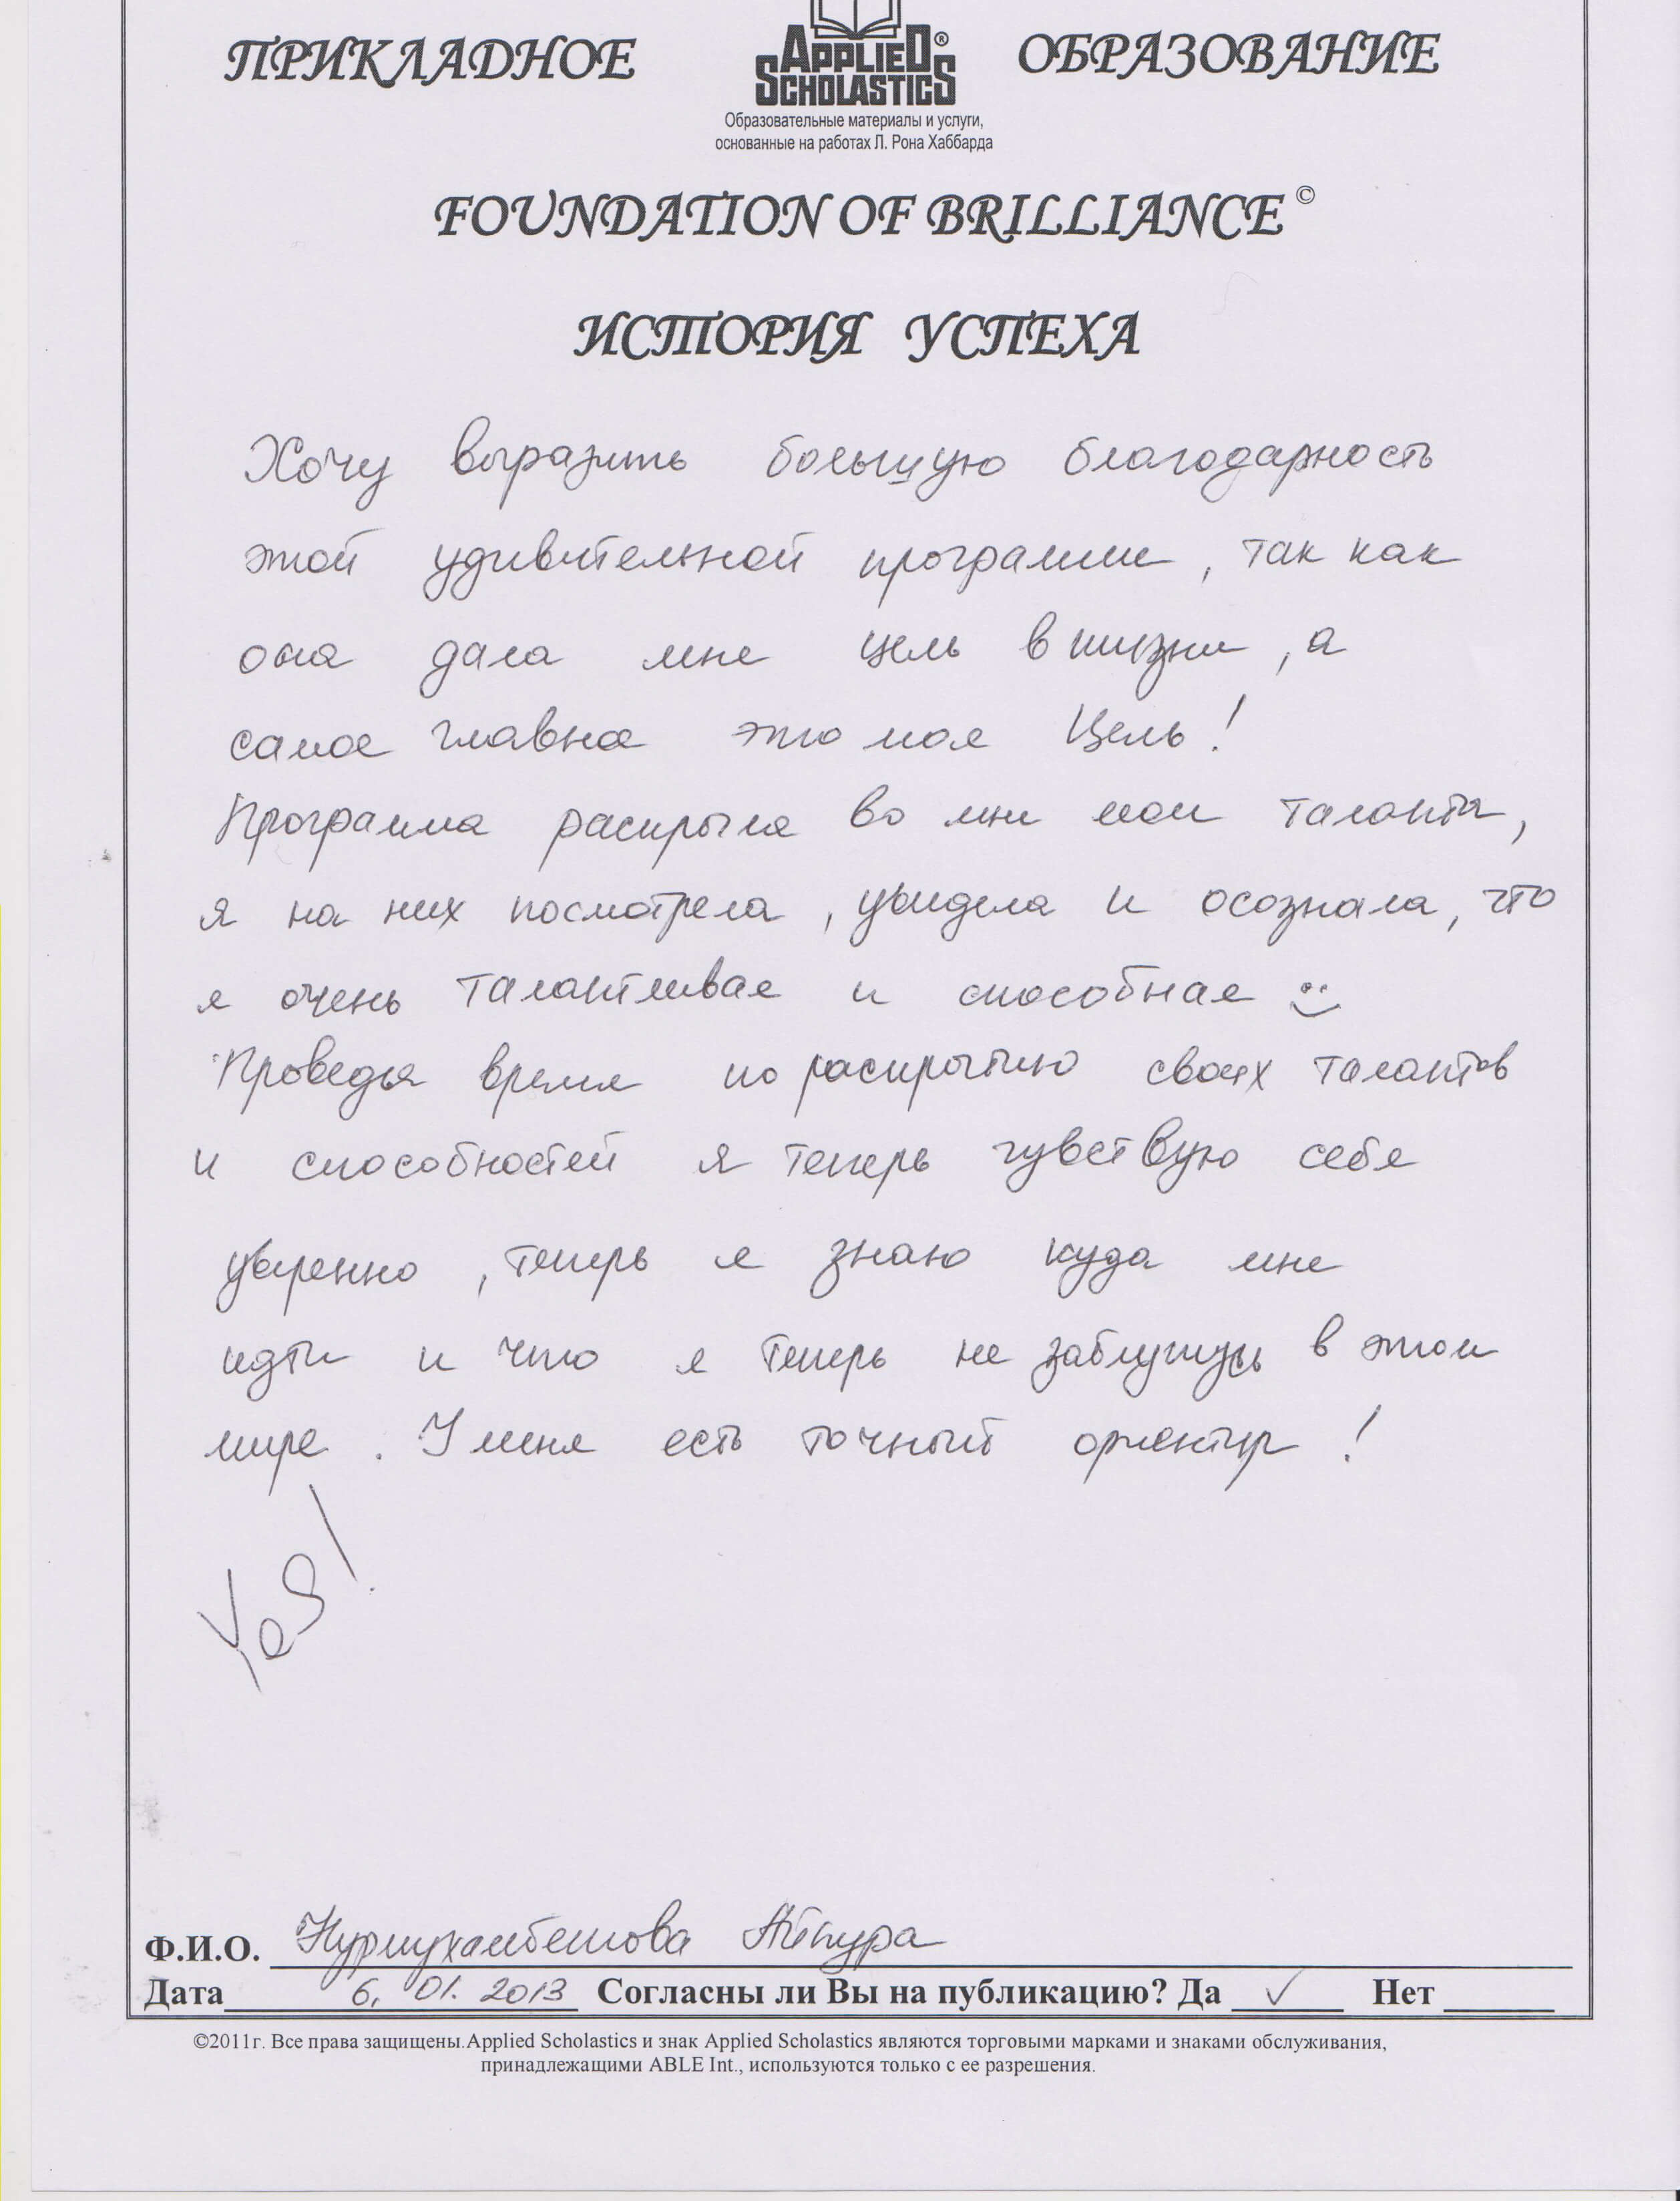 ПРИКЛАДНОЕ APPLIED SCHOLASTICS® ОБРАЗОВАНИЕ
Образовательные материалы и услуги,
основанные на работах Л. Рона Хаббарда
FOUNDATION OF BRILLIANCE ©
ИСТОРИЯ УСПЕХА
Хочу выразить большую благодарность
этой удивительной программе, так как
она дала мне цель в жизни, а
самое главное это моя Цель!
Программа раскрыла во мне мои таланты,
я на них посмотрела, увидела и осознала, что
я очень талантливая и способная
Проведя время по раскрытию своих талантов
и способностей я теперь чувствую себя
уверенно, теперь я знаю куда мне
идти и что я теперь не заблужусь в этом
мире. У меня есть точный ориентир!
Yes!
Ф.И.О. Нурмухамбетова Айнура
Дата 6.01.2013 Согласны ли Вы на публикацию? Да ✓ Нет
©2011г. Все права защищены.Applied Scholastics и знак Applied Scholastics являются торговыми марками и знаками обслуживания,
принадлежащими ABLE Int., используются только с ее разрешения.